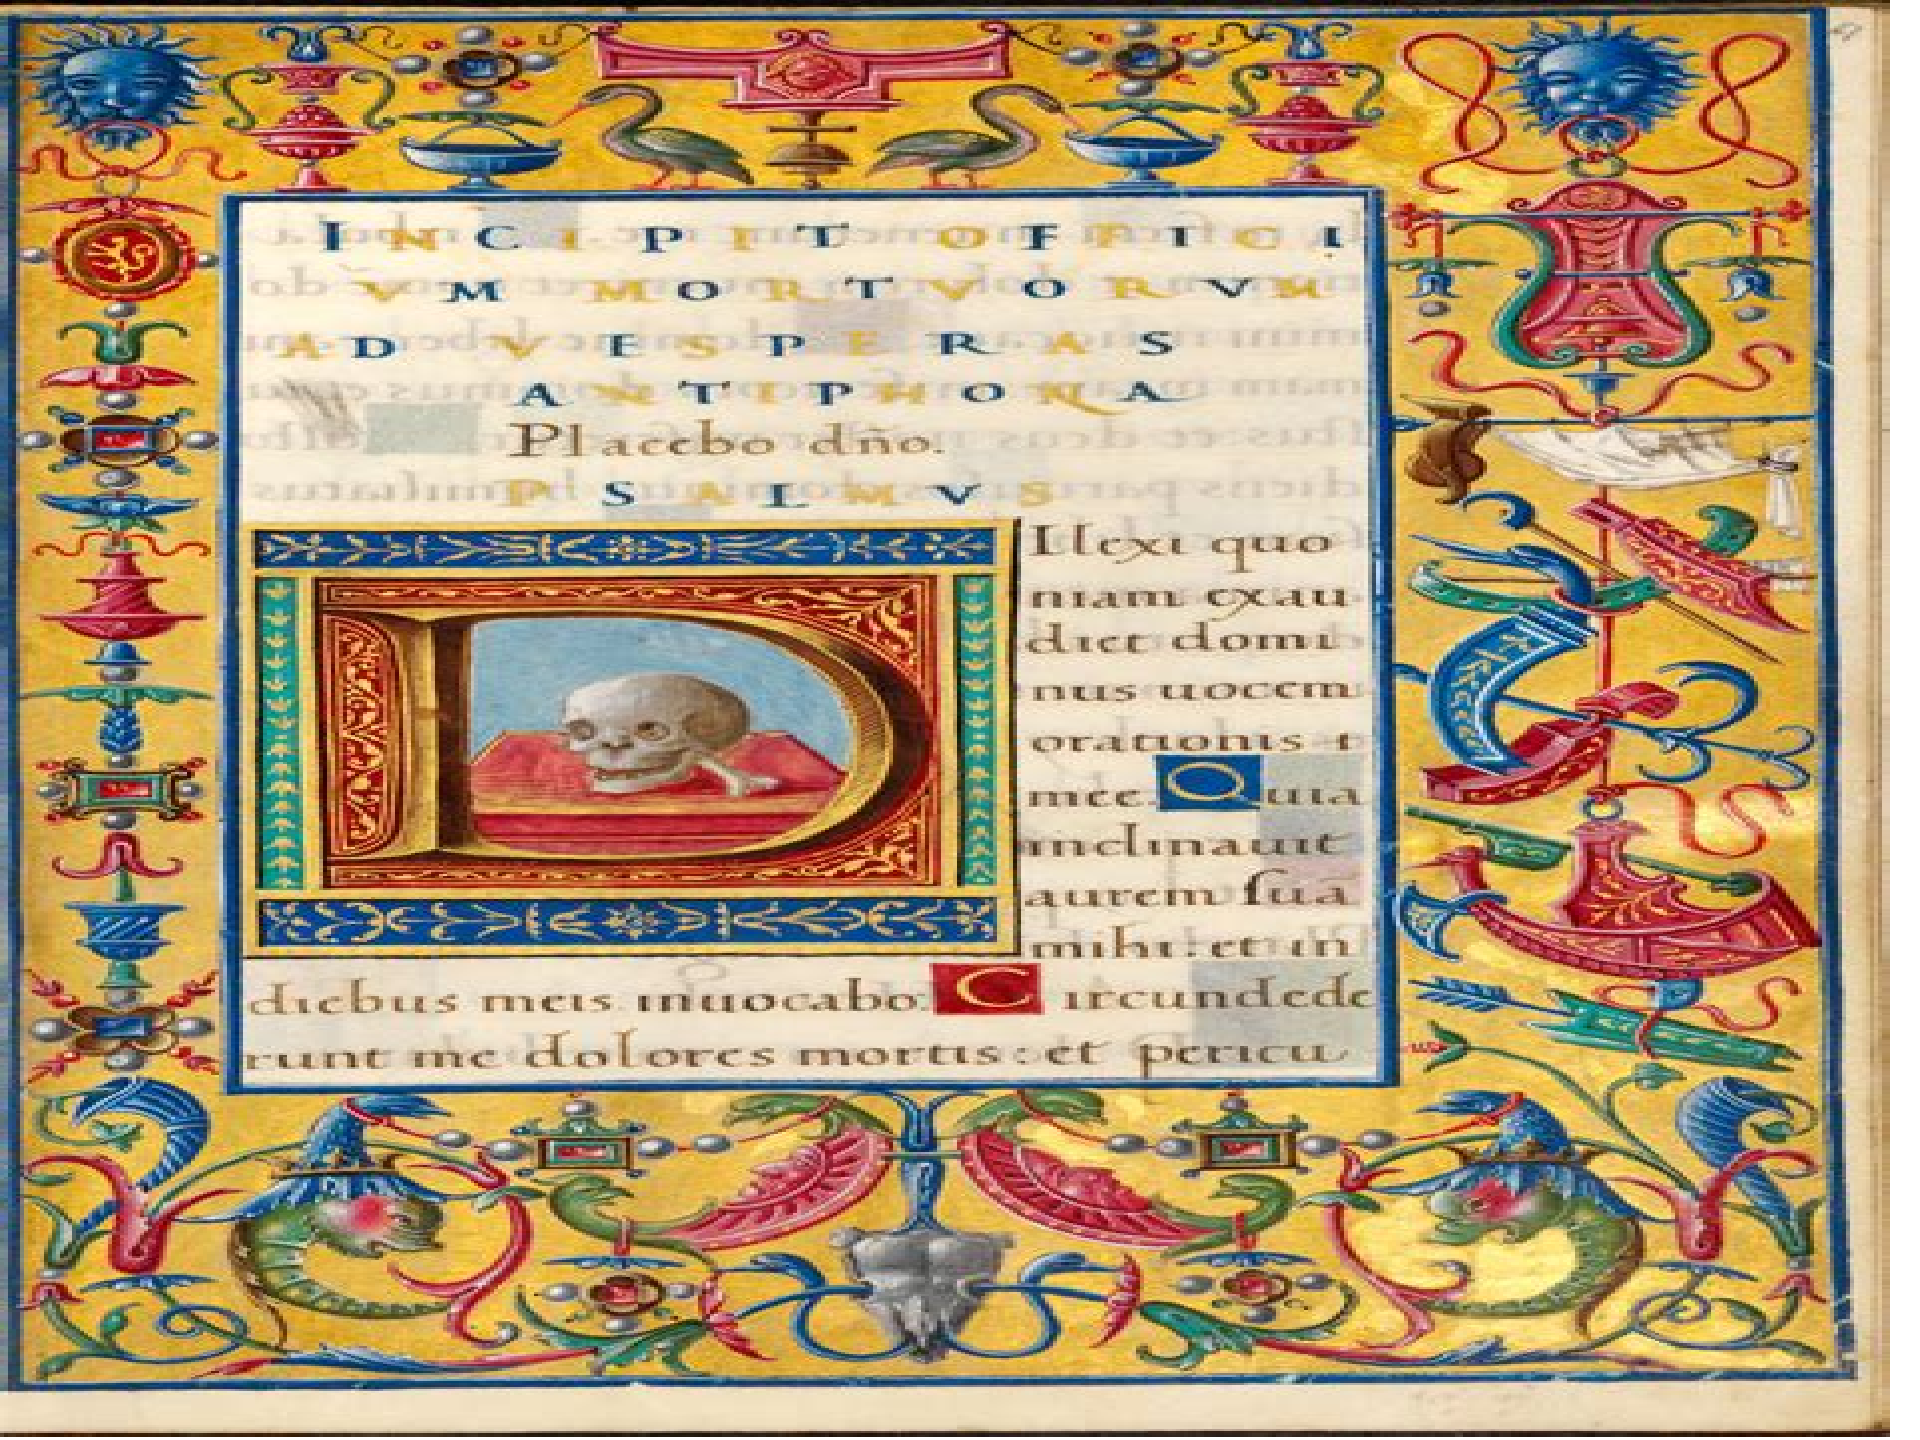 INCIPIT OFFICI
VM MORTVORVM
AD VESPERAS
ANTIPHONA
Placebo dño.
PSALMVS
DIlexi quo
niam exau
diet domi
nus uocem
orationis
mee. Quia
inclinauit
aurem sua
mihi: et in
diebus meis inuocabo. Circundede
runt me dolores mortis: et pericu